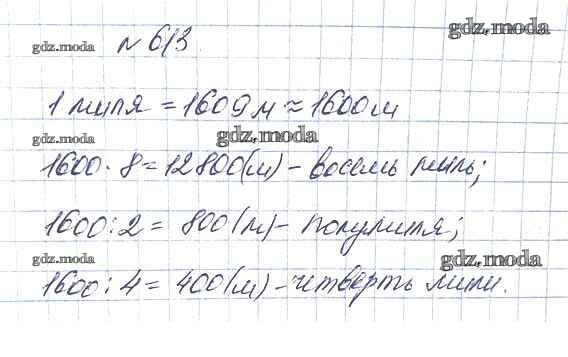 gdz.moda
gdz.moda № 613.
1 миля = 1609 м ≈ 1600 м
gdz.moda gdz.moda
1600 · 8 = 12800 (м) – восемь миль;
1600 : 2 = 800 (м) – полумиля;
gdz.moda gdz.moda
1600 : 4 = 400 (м) – четверть мили.